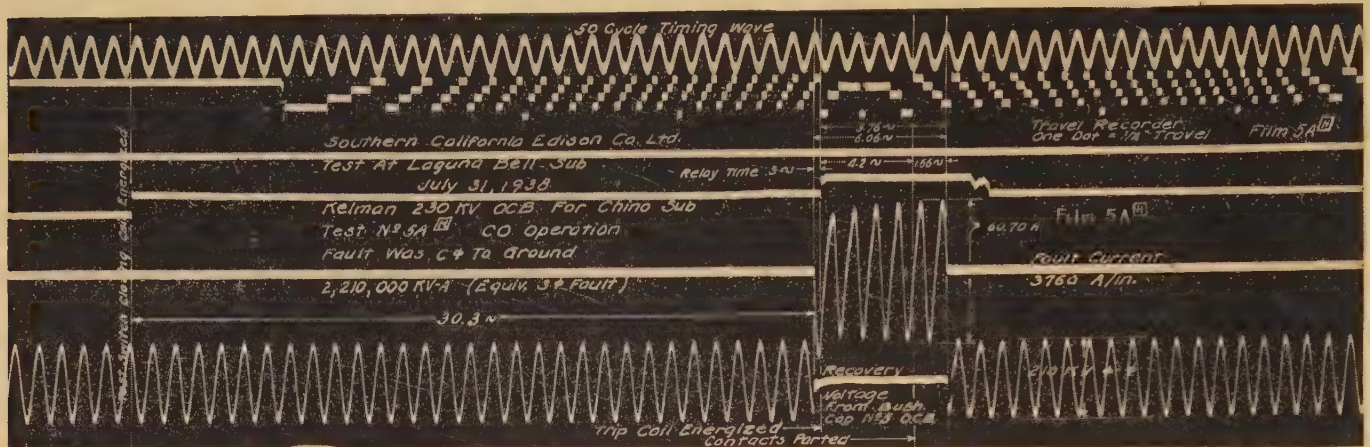 50 Cycle Timing Wave
Test Switch Closing Coil Energized
Southern California Edison Co. Ltd.
Test At Laguna Bell Sub
July 31, 1938
Kelman 230 KV OCB For Chino Sub
Test Nº 5A H CO Operation
Fault Was Cϕ To Ground
2,210,000 KV-A (Equiv. 3ϕ Fault)
30.3~
Relay Time 3~
3.76~
6.06~
4.2~
1.66~
Travel Recorder
One Dot = Travel
Film 5A H
60.70 A
Film 5A H
Fault Current
3760 A/in.
Recovery
Voltage
From Bush.
Cap Nº3 OCB
210 KV
Trip Coil Energized
Contacts Parted